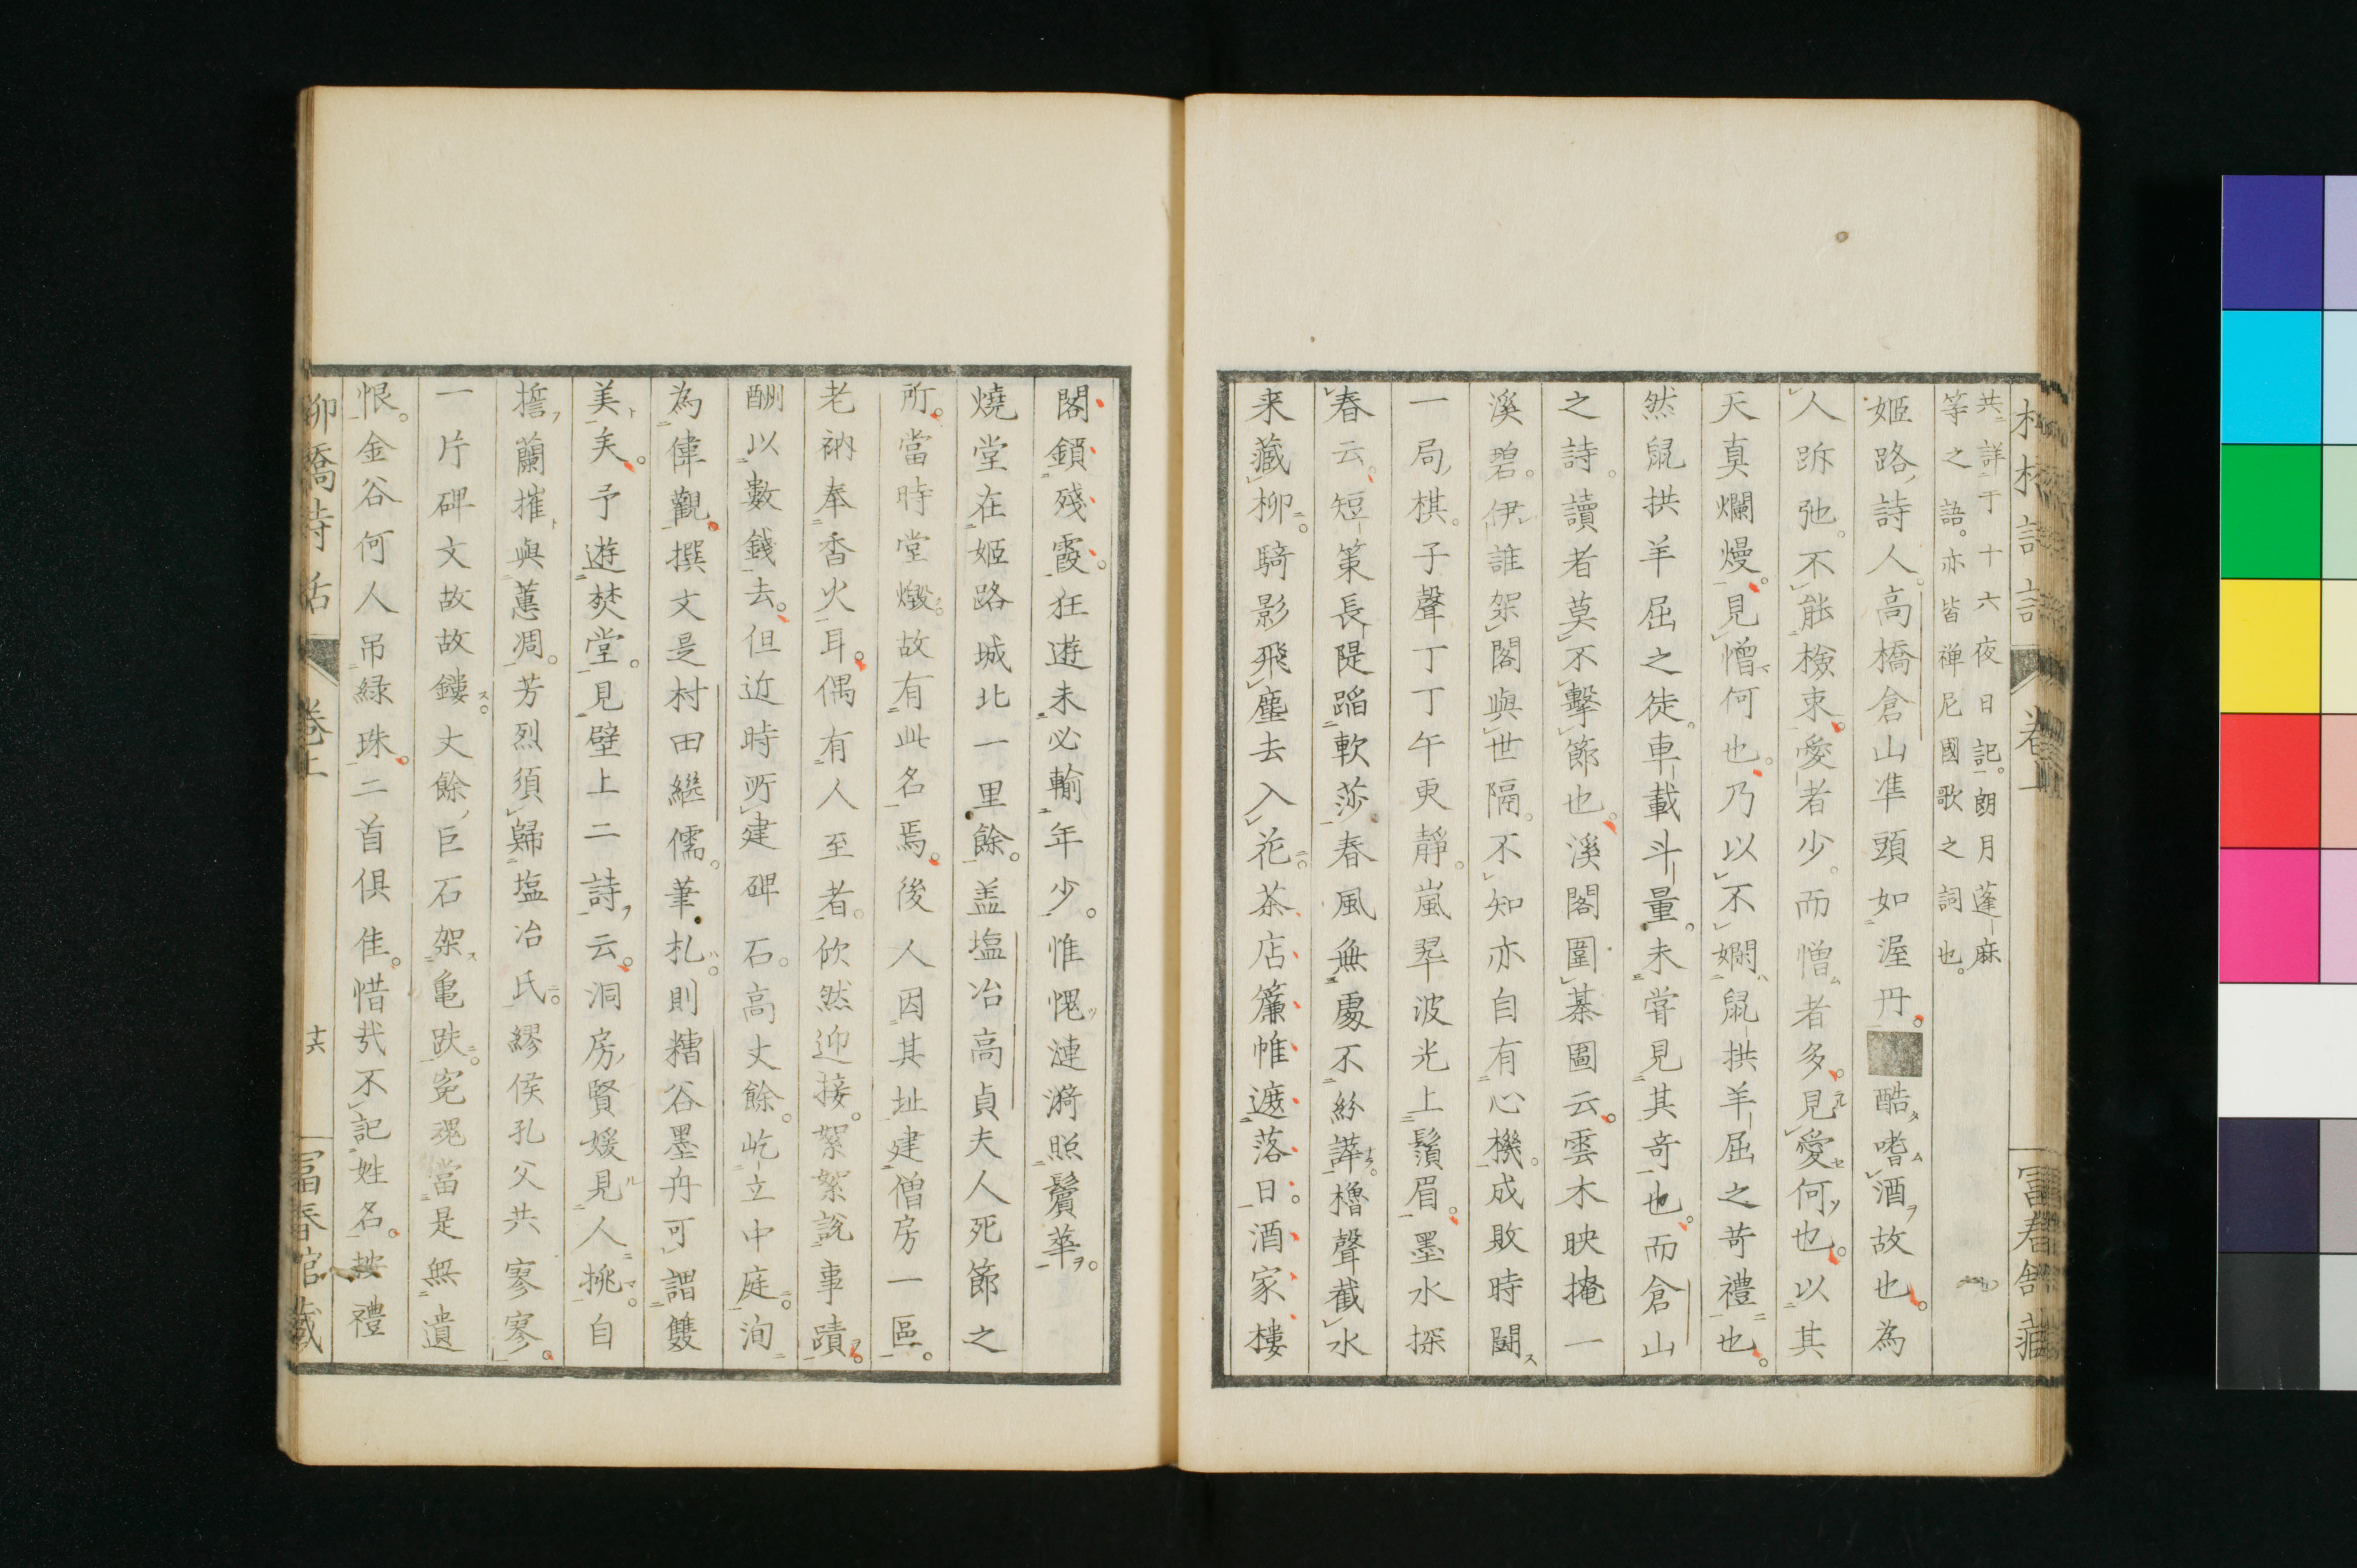 共詳于十六夜日記。朗月蓬麻
等之語。亦皆禅尼國歌之詞也。
姬路詩人。高橋倉山準頭如渥丹。酷嗜酒故也。為
人跅弛。不能檢束。愛者少。而憎者多。見愛何也。以其
天真爛熳。見憎何也。乃以不嫻鼠拱羊屈之苛禮也。
然鼠拱羊屈之徒。車載斗量。未甞見其竒也。而倉山
之詩。讀者莫不擊節也。溪閣圍棊圖云。雲木映掩一
溪碧。伊誰架閣與世隔。不知亦自有心機。成敗時鬪
一局棋。子聲丁丁午更靜。嵐翠波光上鬚眉。墨水探
春云。短策長隄蹈軟莎。春風無處不紛譁。櫓聲截水
来藏柳。騎影飛塵去入花。茶店簾帷遮落日。酒家樓
閣鎖殘霞。狂遊未必輸年少。惟愧漣漪照鬢華。
燒堂在姬路城北一里餘。盖塩冶高貞夫人死節之
所。當時堂燬。故有此名焉。後人因其址建僧房一區。
老衲奉香火耳。偶有人至者。欣然迎接。絮絮說事蹟。
酬以數錢去。但近時所建碑石。高丈餘。屹立中庭。洵
為偉觀。撰文是村田繼儒。筆札。則糟谷墨舟。可謂雙
美矣。予遊焚堂。見壁上二詩云。洞房賢媛見人挑。自
誓蘭摧與蕙凋。芳烈須歸塩冶氏。繆侯孔父共寥寥。
一片碑文故故鏤。丈餘巨石架亀趺。寃魂當是無遺
恨。金谷何人吊緑珠。二首俱佳。惜哉不記姓名。按禮
柳橋詩話 卷上 十六 富春館藏